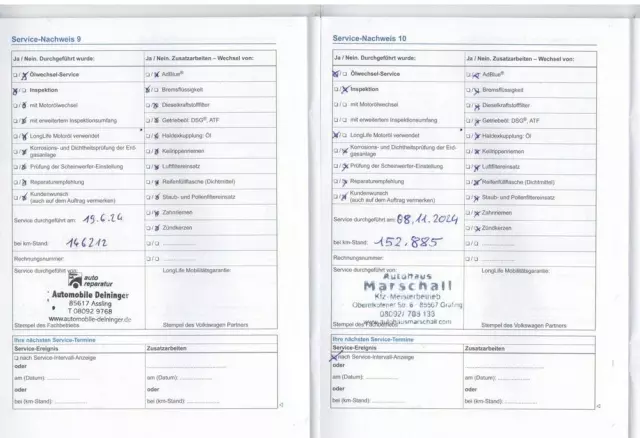 Service-Nachweis 9
Ja / Nein. Durchgeführt wurde:
Ja / Nein. Zusatzarbeiten – Wechsel von:
Ölwechsel-Service
AdBlue®
Inspektion
Bremsflüssigkeit
mit Motorölwechsel
Dieselkraftstofffilter
mit erweitertem Inspektionsumfang
Getriebeöl: DSG®, ATF
LongLife Motoröl verwendet
Haldexkupplung: Öl
Korrosions- und Dichtheitsprüfung der Erd-
gasanlage
Keilrippenriemen
Prüfung der Scheinwerfer-Einstellung
Luftfiltereinsatz
Reparaturempfehlung
Reifenfüllflasche (Dichtmittel)
Kundenwunsch
(auch auf dem Auftrag vermerken)
Staub- und Pollenfiltereinsatz
Service durchgeführt am: 19.6.24
Zahnriemen
Zündkerzen
bei km-Stand: 146212
Rechnungsnummer:
Service durchgeführt von:
LongLife Mobilitätsgarantie:
auto
reparatur
Automobile Deininger
85617 Assling
T 08092 9768
www.automobile-deininger.de
Stempel des Fachbetriebs
Stempel des Volkswagen Partners
Ihre nächsten Service-Termine
Service-Ereignis
Zusatzarbeiten
nach Service-Intervall-Anzeige
oder
am (Datum):
am (Datum):
oder
oder
bei (km-Stand):
bei (km-Stand):
Service-Nachweis 10
Ja / Nein. Durchgeführt wurde:
Ja / Nein. Zusatzarbeiten – Wechsel von:
Ölwechsel-Service
AdBlue®
Inspektion
Bremsflüssigkeit
mit Motorölwechsel
Dieselkraftstofffilter
mit erweitertem Inspektionsumfang
Getriebeöl: DSG®, ATF
LongLife Motoröl verwendet
Haldexkupplung: Öl
Korrosions- und Dichtheitsprüfung der Erd-
gasanlage
Keilrippenriemen
Prüfung der Scheinwerfer-Einstellung
Luftfiltereinsatz
Reparaturempfehlung
Reifenfüllflasche (Dichtmittel)
Kundenwunsch
(auch auf dem Auftrag vermerken)
Staub- und Pollenfiltereinsatz
Service durchgeführt am: 08.11.2024
Zahnriemen
Zündkerzen
bei km-Stand: 152.885
Rechnungsnummer:
Service durchgeführt von:
LongLife Mobilitätsgarantie:
Autohaus
Marschall
Kfz-Meisterbetrieb
85567 Grafing
www.autohausmarschall.com
Stempel des Fachbetriebs
Stempel des Volkswagen Partners
Ihre nächsten Service-Termine
Service-Ereignis
Zusatzarbeiten
nach Service-Intervall-Anzeige
oder
am (Datum):
am (Datum):
oder
oder
bei (km-Stand):
bei (km-Stand):